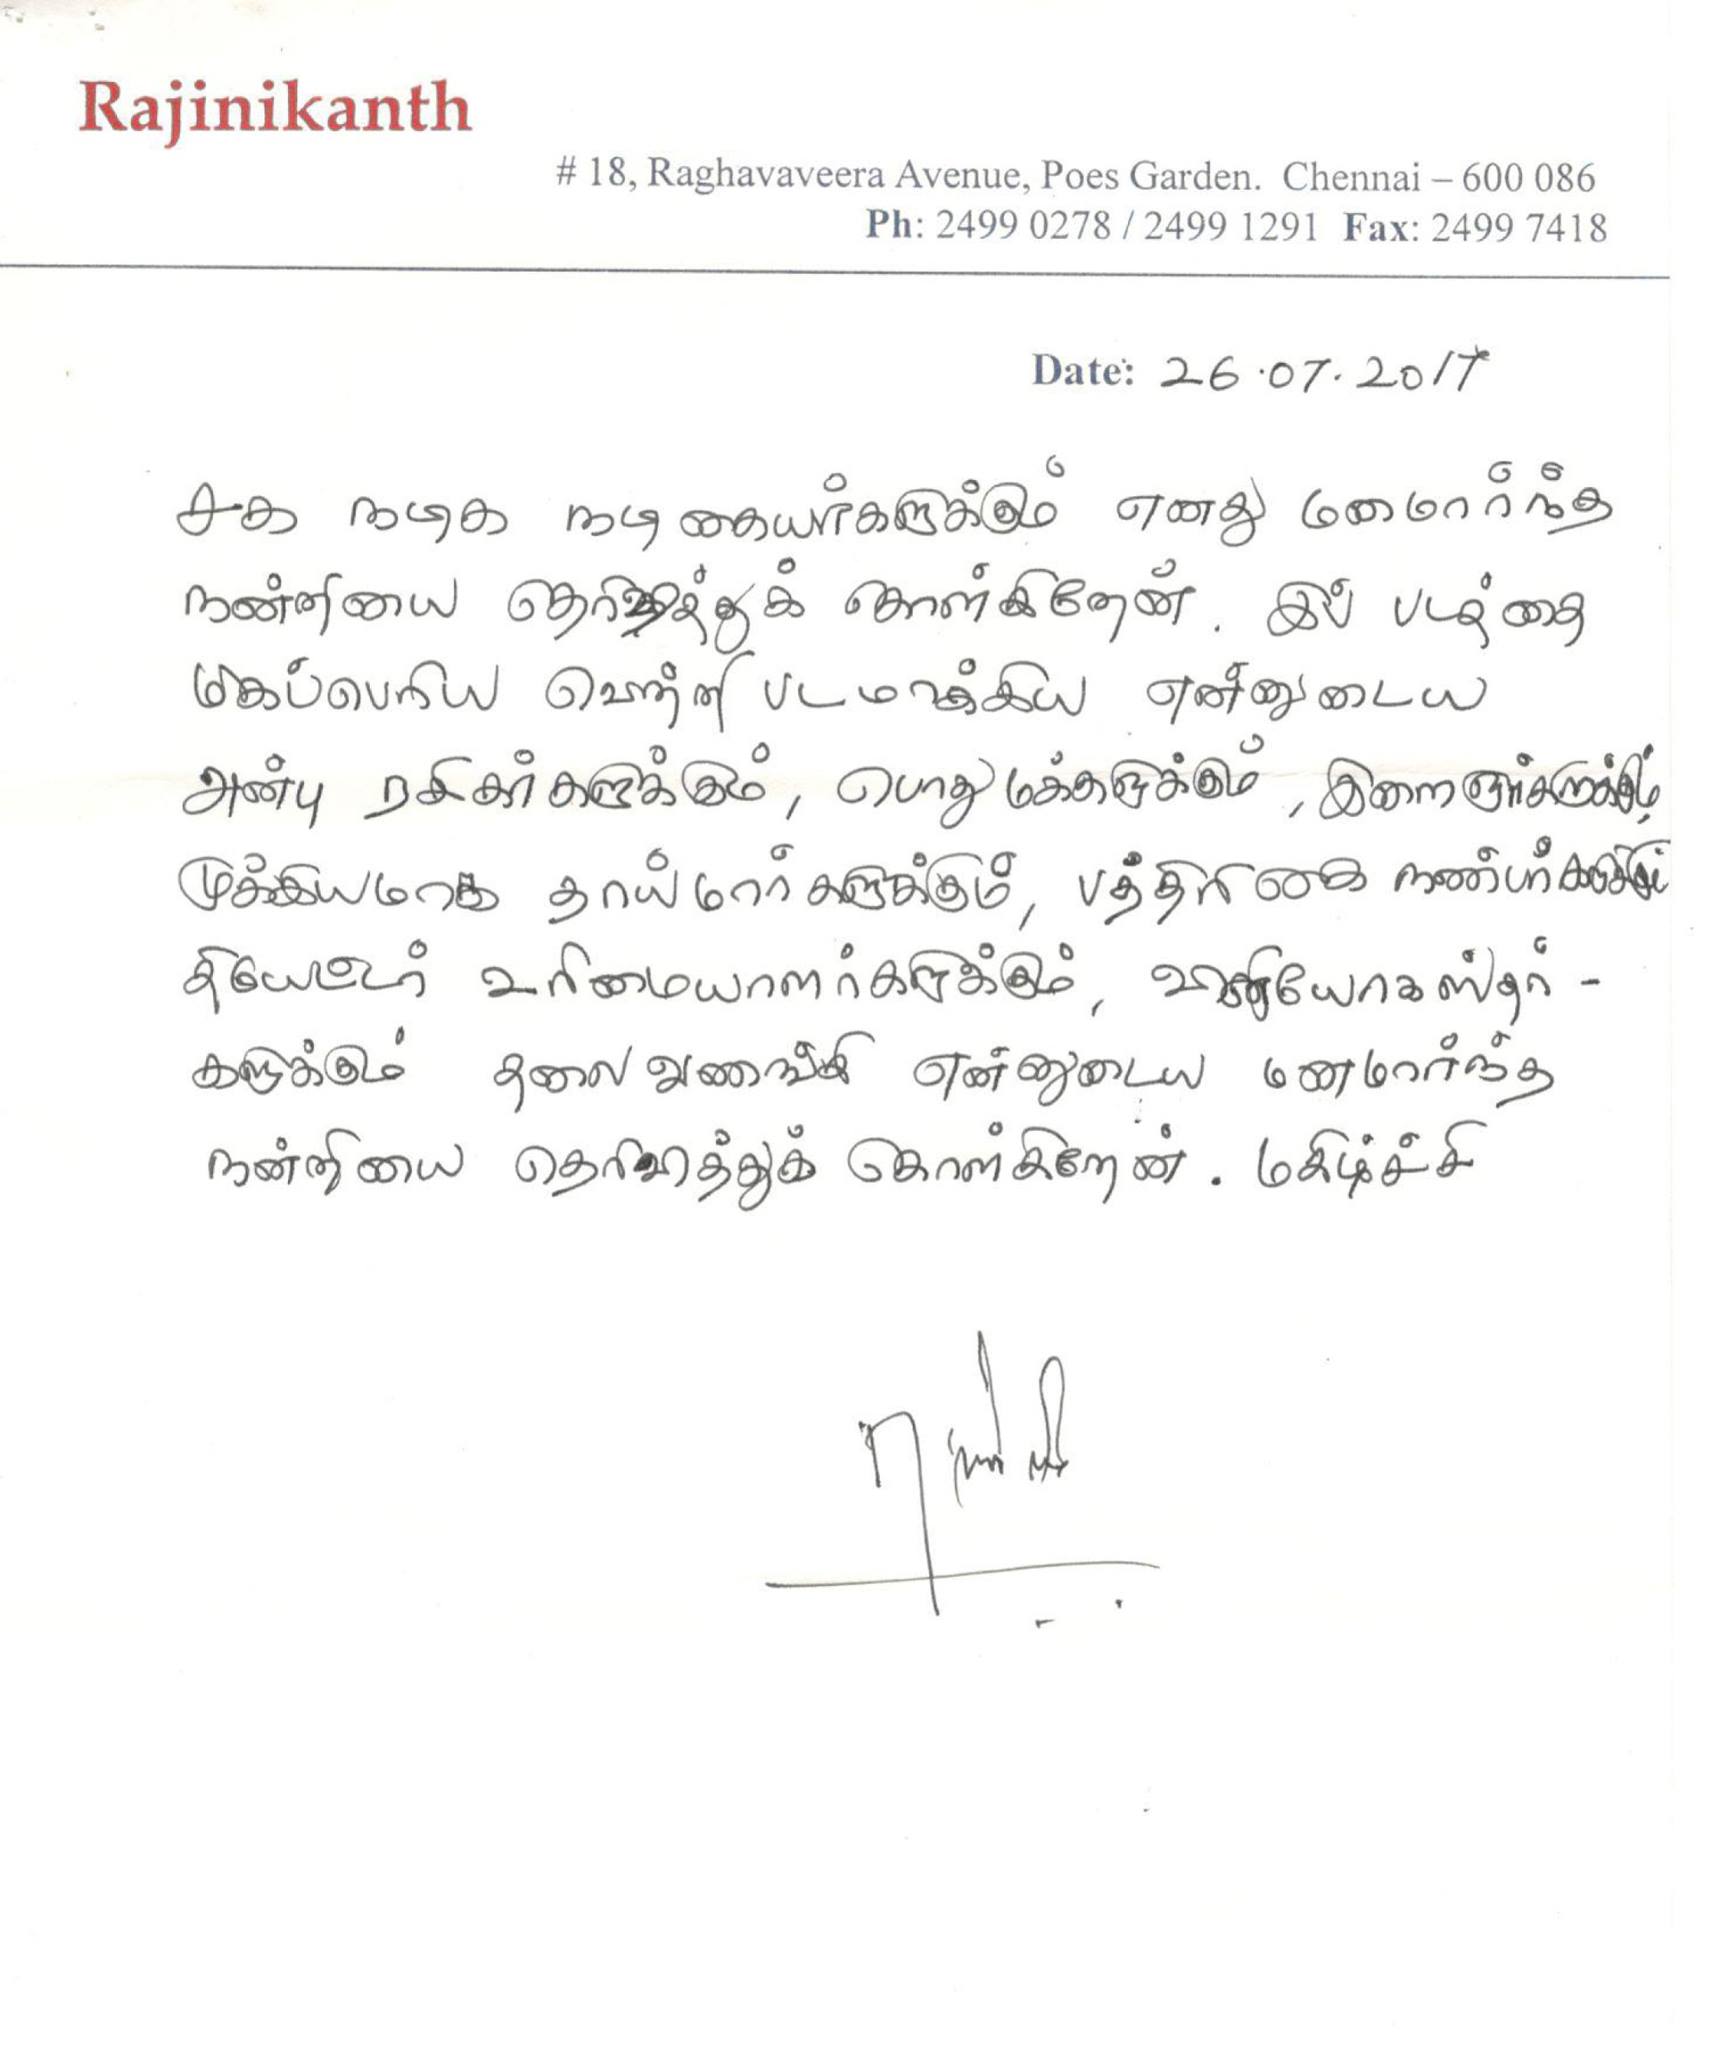 Rajinikanth
# 18, Raghavaveera Avenue, Poes Garden. Chennai – 600 086
Ph: 2499 0278 / 2499 1291 Fax: 2499 7418
Date: 26.07.2017
சக நடிக நடிகையர்களுக்கும் எனது மனமார்ந்த
நன்றியை தெரிவித்துக் கொள்கிறேன். இப் படத்தை
மிகப்பெரிய வெற்றி படமாக்கிய என்னுடைய
அன்பு ரசிகர்களுக்கும், பொதுமக்களுக்கும், இளைஞர்களுக்கும்,
முக்கியமாக தாய்மார்களுக்கும், பத்திரிகை நண்பர்களுக்கும்
தியேட்டர் உரிமையாளர்களுக்கும், வினியோகஸ்தர் -
களுக்கும் தலை வணங்கி என்னுடைய மனமார்ந்த
நன்றியை தெரிவித்துக் கொள்கிறேன். மகிழ்ச்சி